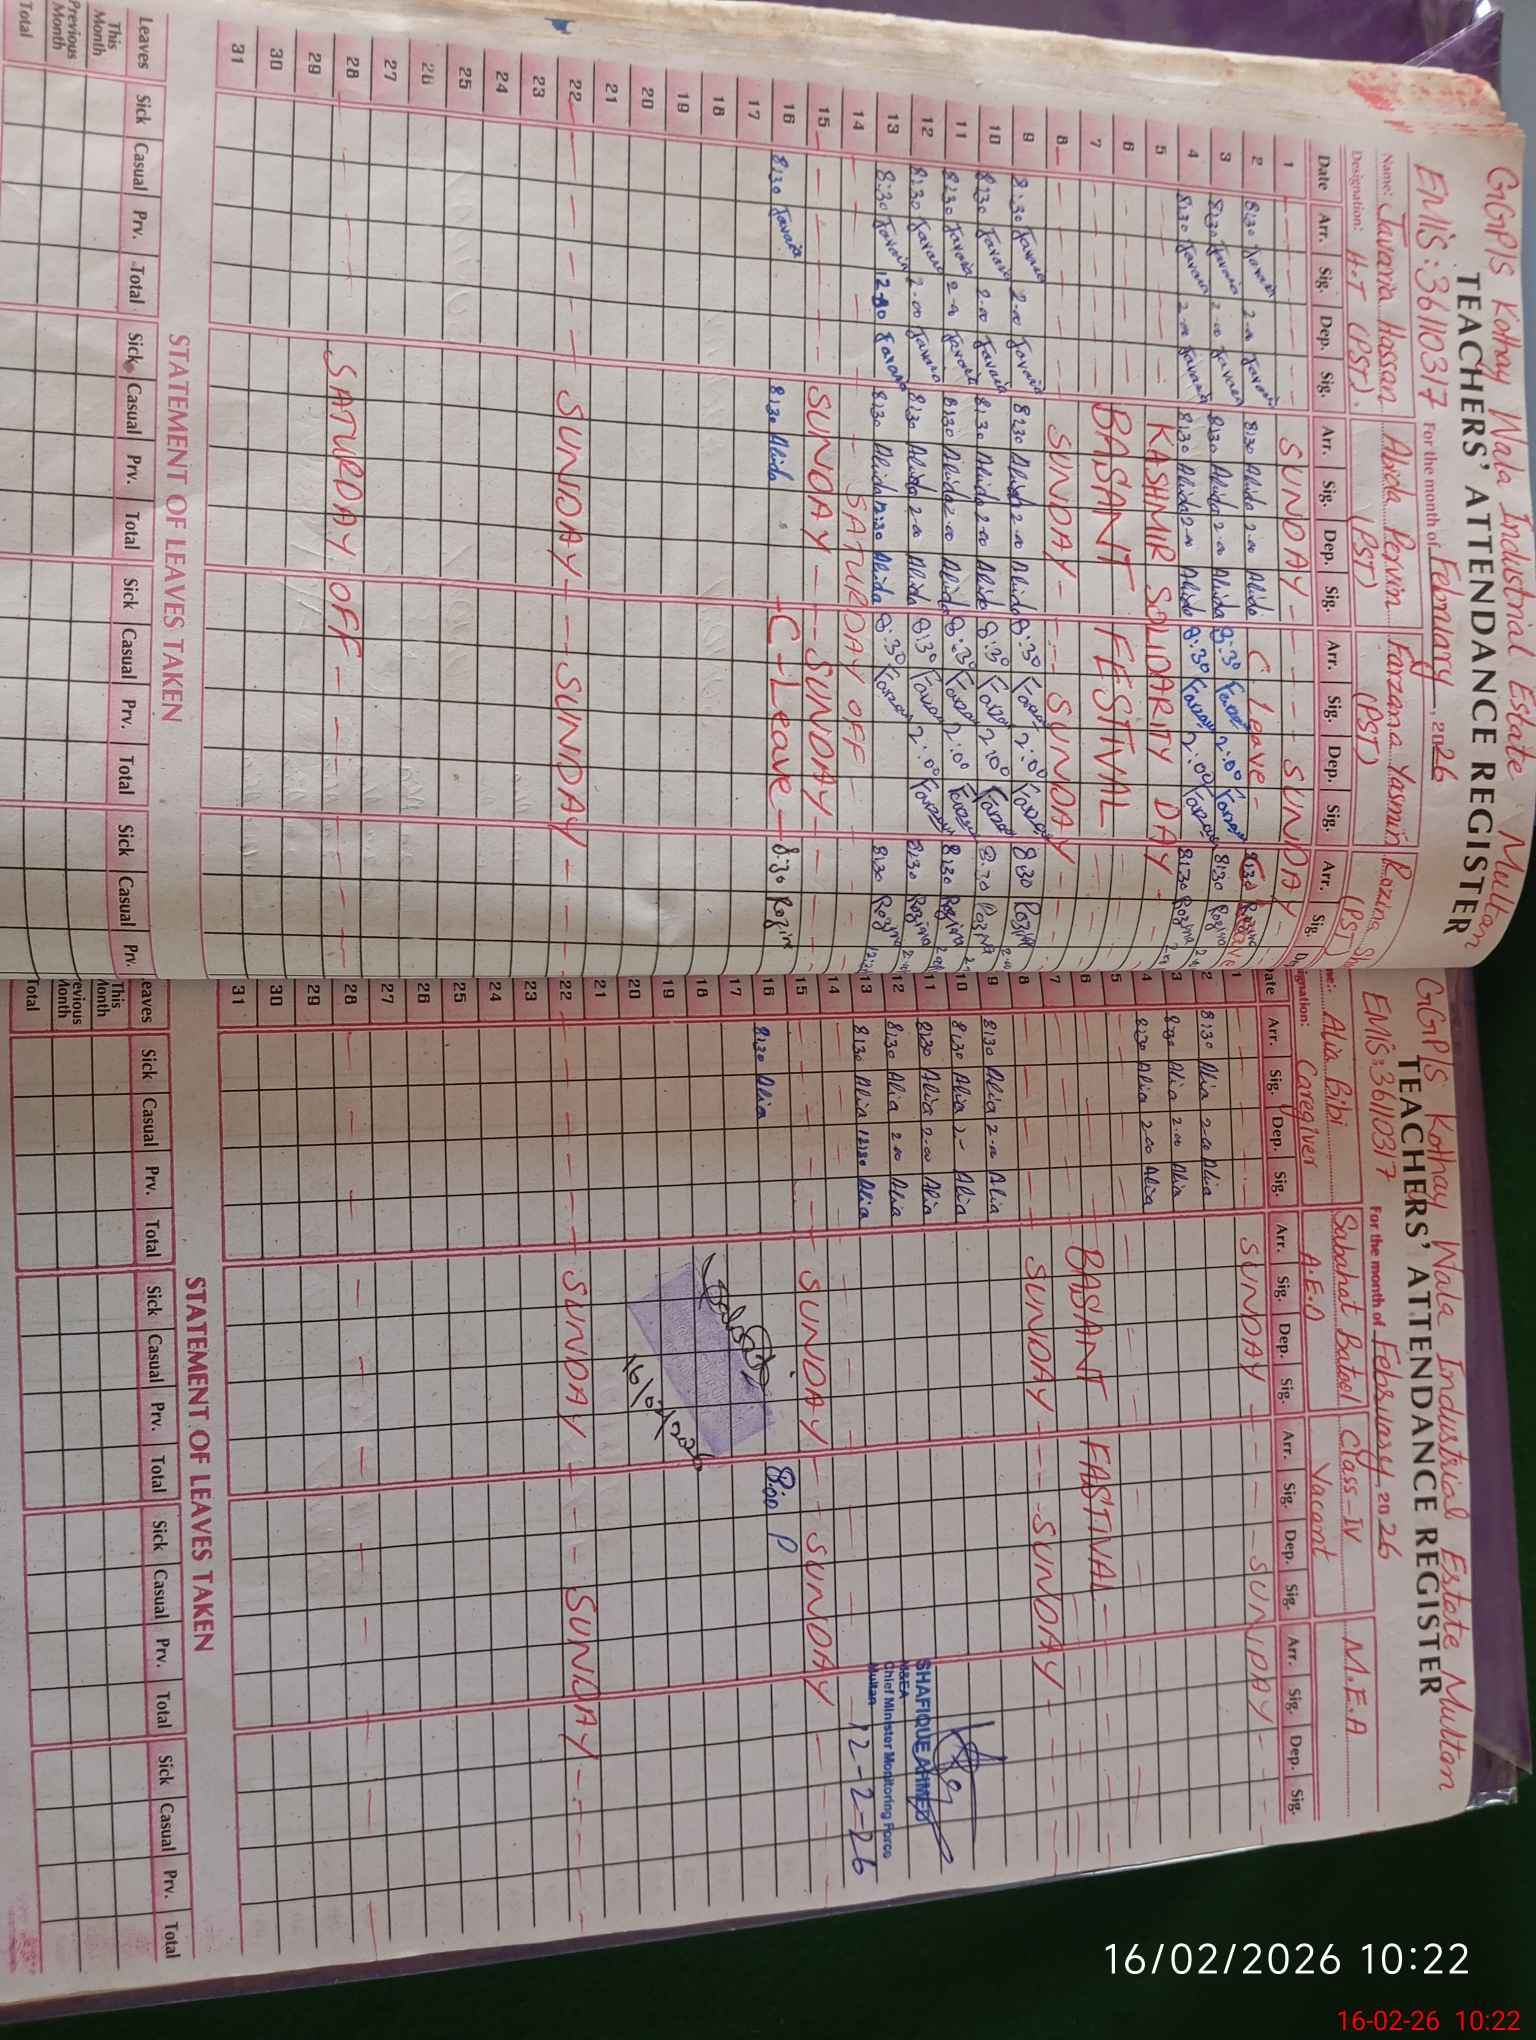 GGP/S Kothay Wala Industrial Estate Multan
TEACHERS' ATTENDANCE REGISTER
EMIS: 36110317 For the month of February, 2026
Name: Javaria Hassan Abida Pervin Farzana Yasmin Rozina
Designation: H.T (PST). (PST) (PST) (PST)
Date Arr. Sig. Dep. Sig. Arr. Sig. Dep. Sig. Arr. Sig. Dep. Sig. Arr. Sig.
1 SUNDAY SUNDAY
2 8:30 Javaria 2-00 Javaria 8:30 Abida 2-00 Abida C Leave
3 8:30 Javaria 2-00 Javaria 8:30 Abida 2-00 Abida 8:30 Farzan 2:00 Farzan 8:30 Rozina
4 8:30 Javaria 2-00 Javaria 8:30 Abida 2-00 Abida 8:30 Farzan 2:00 Farzan 8:30 Rozina
5 KASHMIR SOLIDARITY DAY
6
7 BASANT FESTIVAL
8 SUNDAY SUNDAY
9 8:30 Javaria 2-00 Javaria 8:30 Abida 2-00 Abida 8:30 Farzan 2:00 Farzan 8:30 Rozina
10 8:30 Javaria 2-00 Javaria 8:30 Abida 2-00 Abida 8:30 Farzan 2:00 Farzan 8:30 Rozina
11 8:30 Javaria 2-00 Javaria 8:30 Abida 2-00 Abida 8:30 Farzan 2:00 Farzan 8:30 Rozina
12 8:30 Javaria 2-00 Javaria 8:30 Abida 2-00 Abida 8:30 Farzan 2:00 Farzan 8:30 Rozina
13 8:30 Javaria 12-30 Javaria 8:30 Abida 12:30 Abida 8:30 Farzan 8:30 Rozina
14 SATURDAY OFF
15 SUNDAY SUNDAY
16 8:30 Javaria 8:30 Abida C-Leave 8:30 Rozina
17
18
19
20
21
22 SUNDAY SUNDAY
23
24
25
26
27
28 SATURDAY OFF
29
30
31
STATEMENT OF LEAVES TAKEN
Leaves Sick Casual Prv. Total Sick Casual Prv. Total Sick Casual Prv. Total Sick Casual Prv.
This Month
Previous Month
Total
GGP/S Kothay Wala Industrial Estate Multan
TEACHERS' ATTENDANCE REGISTER
EMIS: 36110317 For the month of February, 2026
Alia Bibi Sabahat Butool Class-IV M.E.A
Caregiver A.E.O Vacant
Date Arr. Sig. Dep. Sig. Arr. Sig. Dep. Sig. Arr. Sig. Dep. Sig. Arr. Sig. Dep. Sig.
1 SUNDAY SUNDAY
2 8:30 Alia 2-00 Alia
3 8:30 Alia 2-00 Alia
4 8:30 Alia 2-00 Alia
5
6 BASANT FASTIVAL
7
8 SUNDAY SUNDAY
9 8:30 Alia 2-00 Alia
10 8:30 Alia 2- Alia
11 8:30 Alia 2-00 Alia
12 8:30 Alia 2-00 Alia
13 8:30 Alia 12:30 Alia
SHAFIQUE AHMED
M&EA
Chief Minister Monitoring Force
Multan
12-2-26
14
15 SUNDAY SUNDAY
16 8:30 Alia 8:00 P
16/02/2026
17
18
19
20
21
22 SUNDAY SUNDAY
23
24
25
26
27
28
29
30
31
STATEMENT OF LEAVES TAKEN
Leaves Sick Casual Prv. Total Sick Casual Prv. Total Sick Casual Prv. Total Sick Casual Prv. Total
This Month
Previous Month
Total
16/02/2026 10:22
16-02-26 10:22